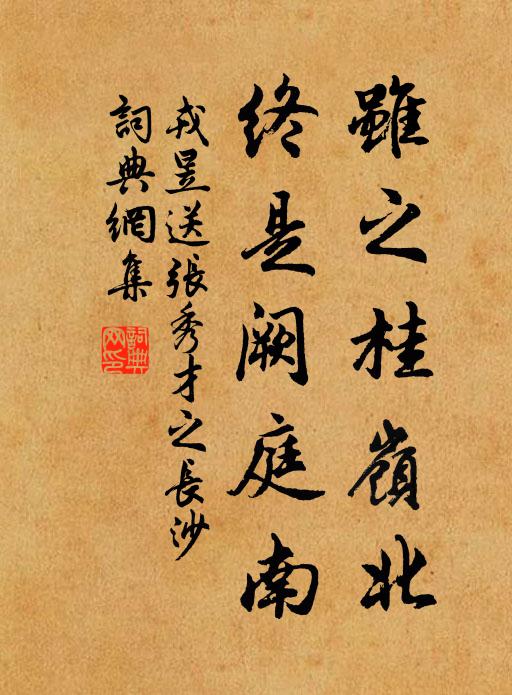 雖之桂嶺北
終是闕庭南
戎昱送張秀才之長沙
詞典網集
詞典
网印